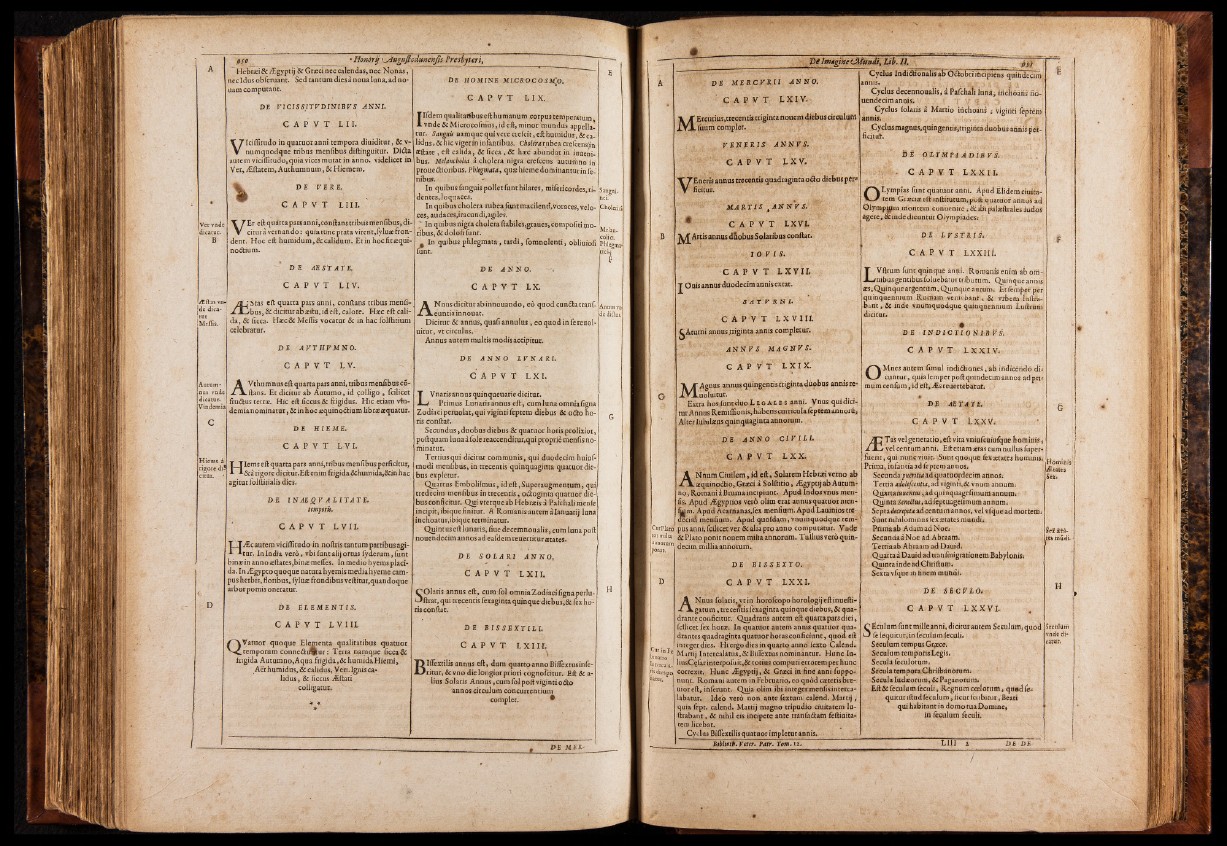 950
Honorij Augustodunensis Presbyteri,
Hebræi & Ægyptij & Græci nec calendas, nec Nonas,
nec Idus obseruant. Sed tantum dies à noua luna, ad no-
uam computant.
DE VICISSITVDINIBVS ANNI.
CAPVT LII.
VIcissitudo in quatuor anni tempora diuiditur, & v-
numquodque tribus mensibus distinguitur. Dicta
autem vicissitudo, quia vices mutat in anno. videlicet in
Ver, Æstatem, Authumnum, & Hiemem.
DE VERE.
CAPVT LIII.
VEr est quarta pars anni, constans tribus mensibus, di-
citur à vernando: quia tunc prata virent, syluæ fron-
dent. Hoc est humidum, & calidum. Et in hoc fit æqui-
noctium.
DE AESTATE.
CAPVT LIV.
ÆStas est quarta pars anni, constans tribus mensi-
bus, & dicitur ab æstu, id est, calore. Hæc est cali-
da, & sicca. Hæc & Messis vocatur & in hac solstitium
celebratur.
DE AVTHVMNO.
CAPVT LV.
AVthumnus est quarta pars anni, tribus mensibus cō-
stans. Et dicitur ab Autumo, id colligo, scilicet
fructus terræ. Hic est siccus & frigidus. Hic etiam vin-
demia nominatur, & in hoc æquinoctium libræ æquatur.
DE HIEME.
CAPVT LVI.
HIems est quarta pars anni, tribus mensibus perficitur,
& à rigore dicitur. Est enim frigida & humida, & in hac
agitur solstitialis dies.
DE INAEQVALITATE.
temporis.
CAPVT LVII.
HÆc autem vicissitudo in nostris tantum partibus agi-
tur. In India verò, vbi sunt alij ortus syderum, sunt
binæ in anno æstates, binæ messes. In medio hyems placi-
da. In Ægypto quoque natura hyemis media hyeme cam-
pus herbis, floribus, syluæ frondibus vestitur, quandoque
arbor pomis oneratur.
DE ELEMENTIS.
CAPVT LVIII.
QVatuor quoque Elementa qualitatibus quatuor
temporum connectuntur: Terra namque sicca &
frigida Autumno, Aqua frigida, & humida Hiemi,
Aër humidus, & calidus, Veri. Ignis ca-
lidus, & siccus Æstati
colligatur.
DE HOMINE MICROCOSMO.
CAPVT LIX.
IIsdem qualitatibus est humanum corpus temperatum,
vnde & Microcosmus, id est, minor mundus appella-
tur. Sanguis namque qui vere crescit, est humidus, & ca-
lidus, & hic viget in infantibus. Cholera rubea crescens in
æstate, est calida, & sicca, & hæc abundat in iuueni-
bus. Melancholia à cholera nigra crescens autumno in
prouectioribus. Phlegmata, quæ hieme dominantur in se-
nibus.
In quibus sanguis pollet sunt hilares, misericordes, ri-
dentes, loquaces.
In quibus cholera rubea sunt macilenti, voraces, velo-
ces, audaces, iracundi, agiles.
In quibus nigra cholera stabiles, graues, compositi mo-
ribus, & dolosi sunt.
In quibus phlegmata, tardi, somnolenti, obliuiosi
sunt.
DE ANNO.
CAPVT LX.
ANnus dicitur ab innouando, eò quod cuncta trans-
euntia innouat.
Dicitur & annus, quasi annulus, eo quod in se reuol-
uitur, vt circulus.
Annus autem multis modis accipitur.
DE ANNO LVNARI.
CAPVT LXI.
LVnaris annus quinquevarie dicitur.
Primus Lunaris annus est, cum luna omnia signa
Zodiaci peruolat, qui viginti septem diebus & octo ho-
ris constat.
Secundus, duobus diebus & quatuor horis prolixior,
postquam luna à sole reaccenditur, qui propriè mensis no-
minatur.
Tertius qui dicitur communis, qui duodecim huius-
modi mensibus, in trecentis quinquaginta quatuor die-
bus expletur.
Quartus Embolismus, id est, Superaugmentum, qui
tredecim mensibus in trecentis, octoginta quatuor die-
bus conficitur. Qui vterque ab Hebræis à Paschali mense
incipit, ibique finitur. A Romanis autem à Ianuarij luna
inchoatur, ibique terminatur.
Quintus est lunaris, siue decennoualis, cum luna post
nouendecim annos ad easdem reuertitur ætates.
DE SOLARI ANNO.
CAPVT LXII.
SOlaris annus est, cum sol omnia Zodiaci signa perlu-
strat, qui trecentis sexaginta quinque diebus, & sex ho-
ris constat.
DE BISSEXTILI.
CAPVT LXIII.
BIssextilis annus est, dum quarto anno Bissextus inse-
ritur, & vno die longior priori cognoscitur. Est & a-
lius Solaris Annus, cum sol post viginti octo
annos circulum concurrentium
complet.
DE MER-
De Imagine Mundi, Lib. II.
951
DE MERCVRII ANNO.
CAPVT LXIV.
MErcurius, trecentis triginta nouem diebus circulum
suum complet.
VENERIS ANNVS.
CAPVT LXV.
VEneris annus trecentis quadraginta octo diebus per-
ficitur.
MARTIS ANNVS.
CAPVT LXVI.
MArtis annus duobus Solaribus constat.
IOVIS.
CAPVT LXVII.
IOuis annus duodecim annis extat.
SATVRNI.
CAPVT LXVIII.
SAturni annus triginta annis completur.
ANNVS MAGNVS.
CAPVT LXIX.
MAgnus annus quingentis triginta duobus annis re-
uoluitur.
Extra hos sunt duo LEGALES anni. Vnus qui dici-
tur Annus Remissionis, habens curricula septem annorū,
Alter Iubilæus quinquaginta annorum.
DE ANNO CIVILI.
CAPVT LXX.
ANnum Ciuilem, id est, Solarem Hebræi verno ab
æquinoctio, Græci à Solstitio, Ægyptij ab Autum-
no, Romani à Bruma incipiunt. Apud Indos vnus men-
sis. Apud Ægyptios verò olim erat annus quatuor men-
sium. Apud Acarnanas, sex mensium. Apud Lauinios tre-
decim mensium. Apud quosdam, vnumquodque tem-
pus anni, scilicet ver & alia pro anno computatur. Vnde
& Plato ponit nouem millia annorum. Tullius verò quin-
decim millia annorum.
DE BISSEXTO.
CAPVT LXXI.
ANnus solaris, vt in horoscopo horologij est inuesti-
gatum, trecentis sexaginta quinque diebus, & qua-
drante conficitur. Quadrans autem est quarta pars diei,
scilicet sex horæ. In quatuor autem annis quatuor qua-
drantes quadraginta quatuor horas conficiunt, quod est
integer dies. Hi ergo dies in quarto anno sexto Calend.
Martij Intercalatus, & Bissextus nominantur. Hunc Iu-
lius Cesar interposuit, & totius computi errorem per hunc
correxit. Hunc Ægyptij, & Græci in fine anni suppo-
nunt. Romani autem in Februario, eo quòd cæteris bre-
uior est, inserunt. Quia olim ibi integer mensis interca-
labatur. Ideò verò non ante sextam calend. Martij,
quia sept. calend. Martij magno tripudio ciuitatem lu-
strabant, & nihil eis incipere ante transactam festiuita-
tem licebat.
Cyclus Bissextilis quatuor impletur annis.
Biblioth. Veter. Patr. Tom. 12.
Cyclus Indictionalis ab Octobri incipiens quindecim
annis.
Cyclus decennoualis, à Paschali luna, inchoans no-
uendecim annis.
Cyclus solaris à Martio inchoans, viginti septem
annis.
Cyclus magnus, quingentis, triginta duobus annis per-
ficitur.
DE OLIMPIADIBVS.
CAPVT LXXII.
OLympias sunt quatuor anni. Apud Elidem ciuita-
tem Græciæ est institutum, post quatuor annos ad
Olympum montem conuenire, & ibi palæstrales ludos
agere, & inde dicuntur Olympiades.
DE LVSTRIS.
CAPVT LXXIII.
LVstrum sunt quinque anni. Romanis enim ab om-
nibus gentibus soluebatur tributum. Quinque annis
æs, Quinque argentum, Quinque aurum. Et semper per
quinquennium Romam veniebant, & vrbem lustra-
bant, & inde vnumquodque quinquennium Lustrum
dicitur.
DE INDICTIONIBVS.
CAPVT LXXIV.
OMnes autem simul indictiones, ab indicendo di-
cuntur, quia semper post quindecim annos ad pri-
mum censum, id est, Æs reuertebatur.
DE AETATE.
CAPVT LXXV.
ÆTas vel generatio, est vita vniuscuiusque hominis,
vel centum anni. Est etiam ætas cum nullus super-
fuerit, qui nunc viuit. Sunt quoque sex ætates humanæ,
Prima, infantia ad septem annos.
Secunda pueritia ad quatuordecim annos.
Tertia adolescentia, ad viginti, & vnum annum.
Quarta iuuentus, ad quinquagesimum annum.
Quinta senectus, ad septuagesimum annum.
Sexta decrepita ad centum annos, vel vsque ad mortem.
Sunt nihilominus sex ætates mundi.
Prima ab Adam ad Noe.
Secunda à Noe ad Abraam.
Tertia ab Abraam ad Dauid.
Quarta à Dauid ad transmigrationem Babylonis.
Quinta inde ad Christum.
Sexta vsque in finem mundi.
DE SECVLO.
CAPVT LXXVI.
SEculum sunt mille anni, dicitur autem Seculum, quod
se sequitur, in seculum seculi.
Seculum tempus Græcæ.
Seculum tempus Legis.
Secula seculorum.
Secula tempora Christianorum.
Secula Iudæorum, & Paganorum.
Est & seculum seculi, Regnum cœlorum, quod se-
quitur istud seculum, sicut scribitur, Beati
qui habitant in domo tua Domine,
in seculum seculi.
LLll 2
DE DE-